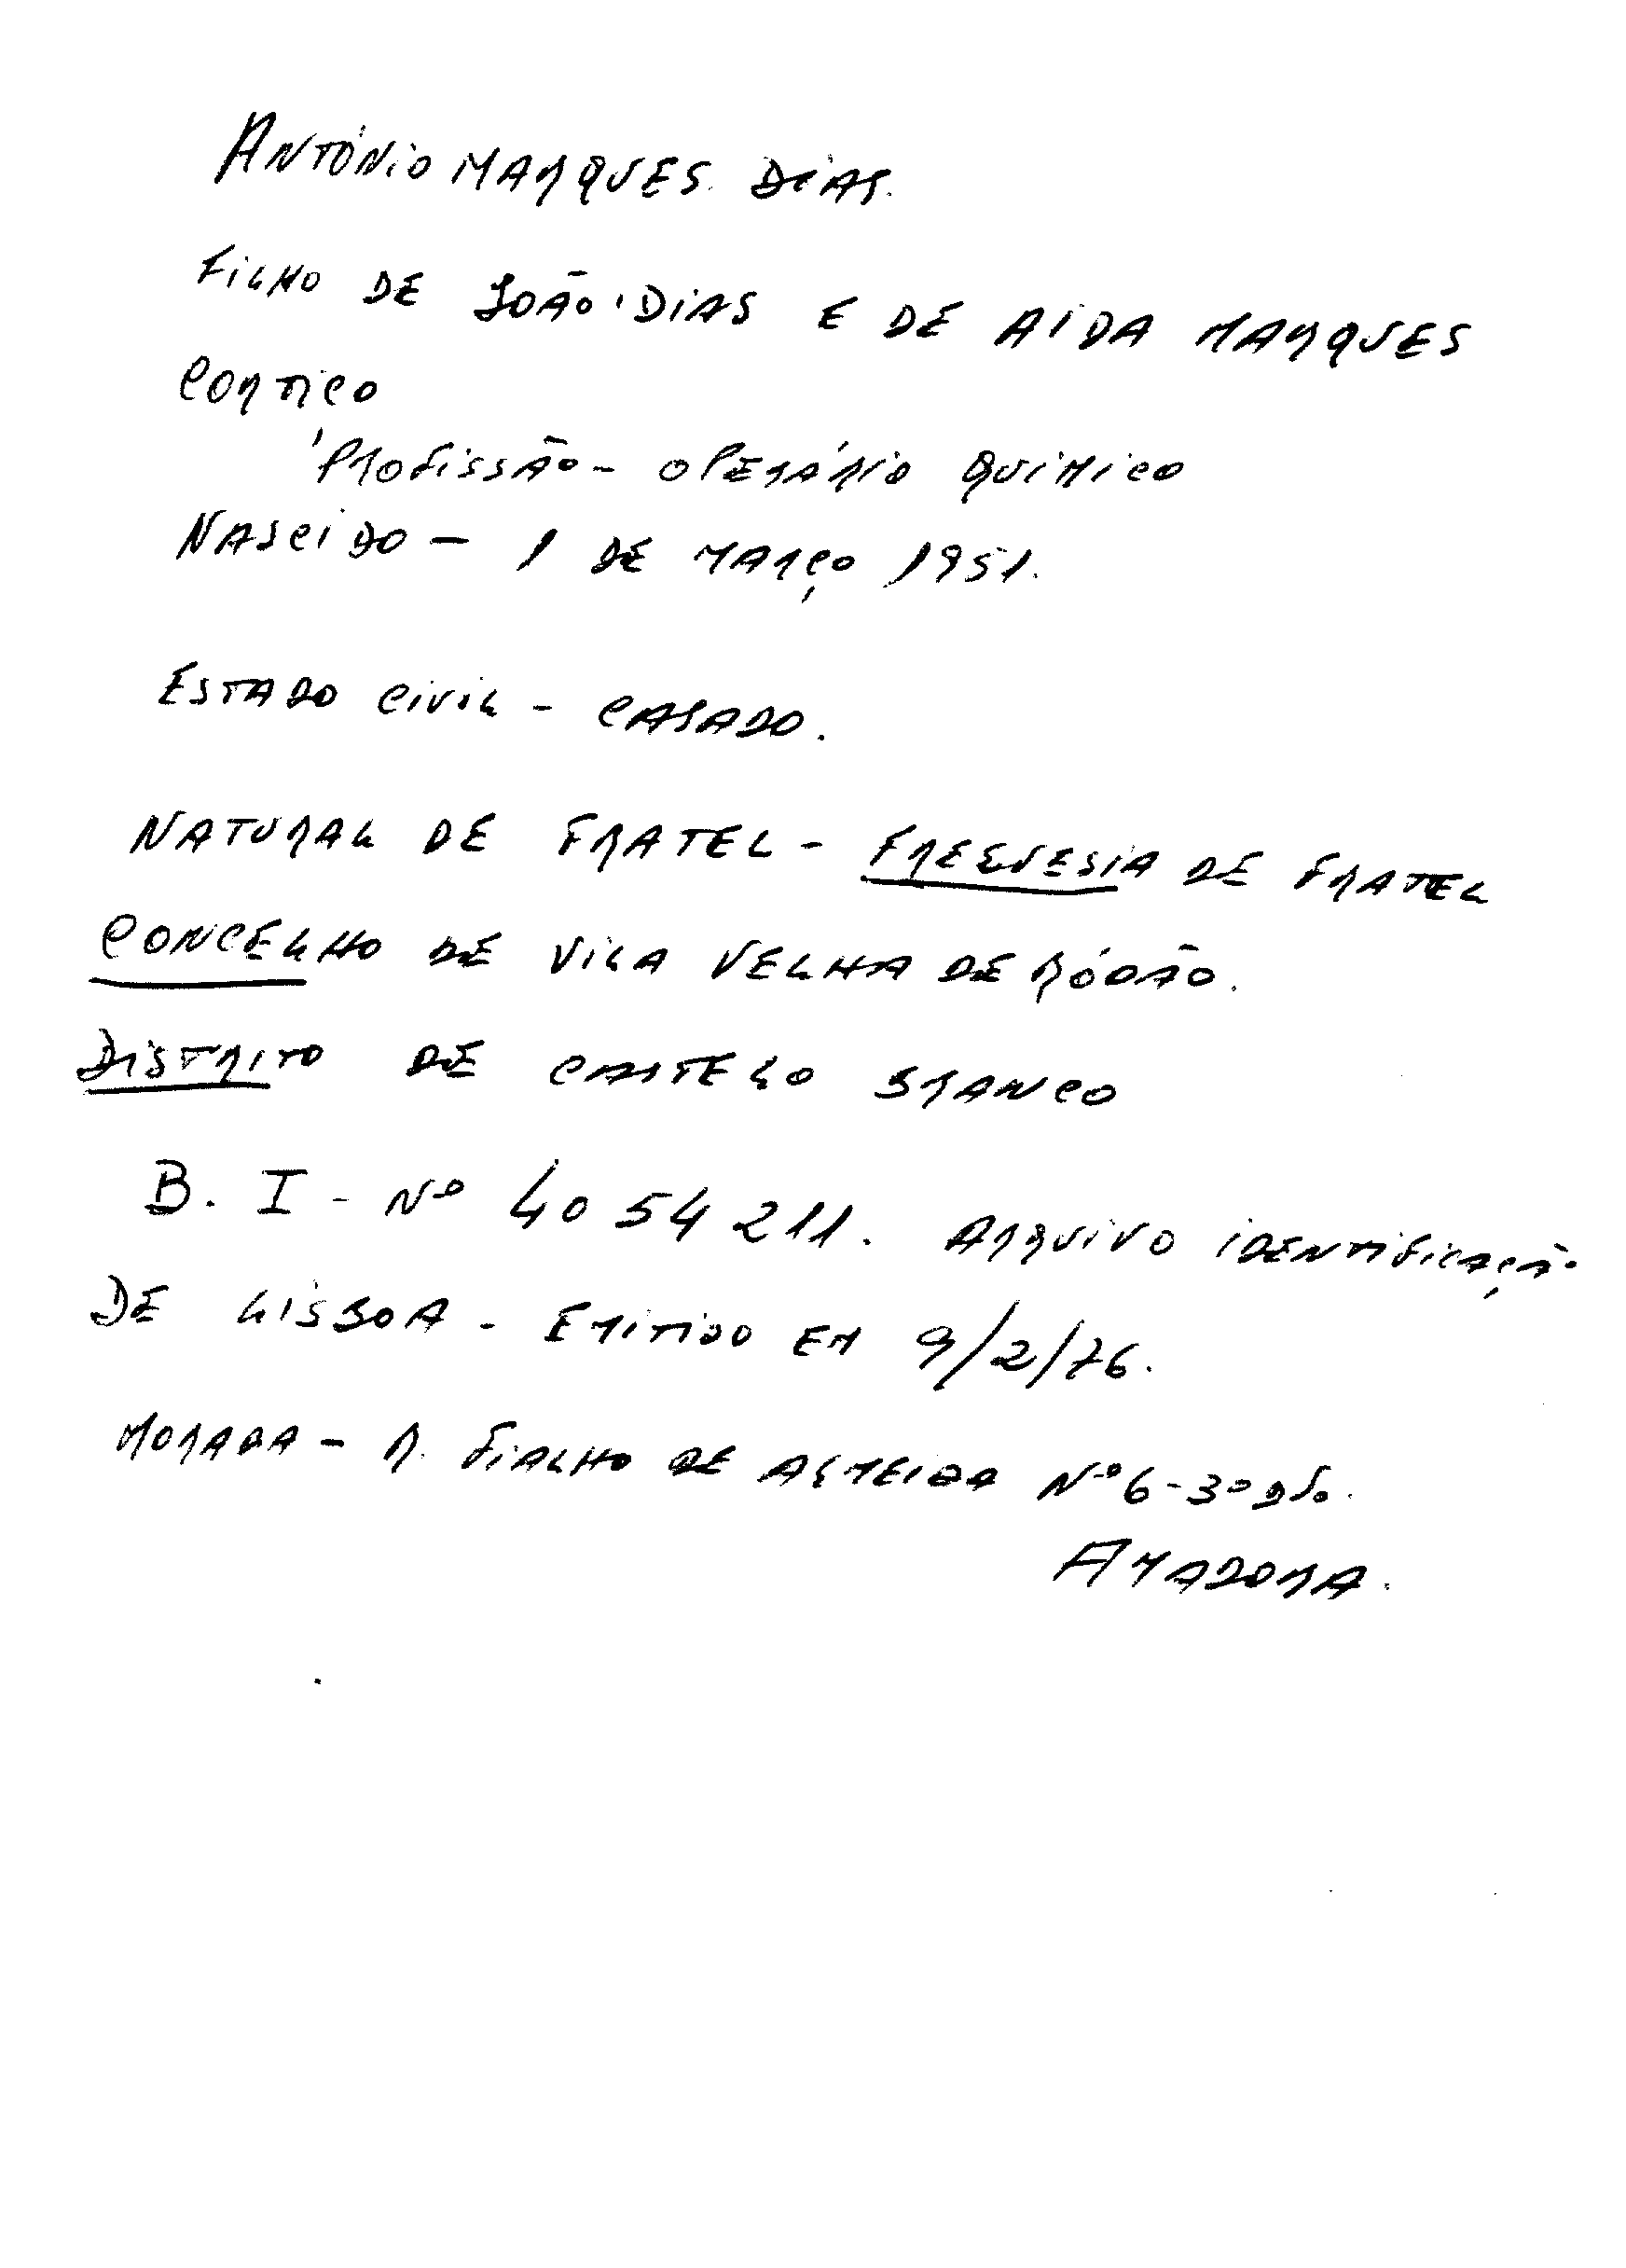 ANTÓNIO MARQUES DIAS.
FILHO DE JOÃO DIAS E DE AIDA MARQUES
CORTIÇO
PROFISSÃO - OPERÁRIO QUIMICO
NASCIDO - 1 DE MARÇO 1951.
ESTADO CIVIL - CASADO.
NATURAL DE FRATEL - FREGUESIA DE FRATEL
CONCELHO DE VILA VELHA DE RÓDÃO.
DISTRITO DE CASTELO BRANCO
B. I - Nº 4054211. ARQUIVO IDENTIFICAÇÃO
DE LISBOA - EMITIDO EM 9/2/76.
MORADA - R. FIALHO DE ALMEIDA Nº 6 - 3º DTO.
AMADORA.